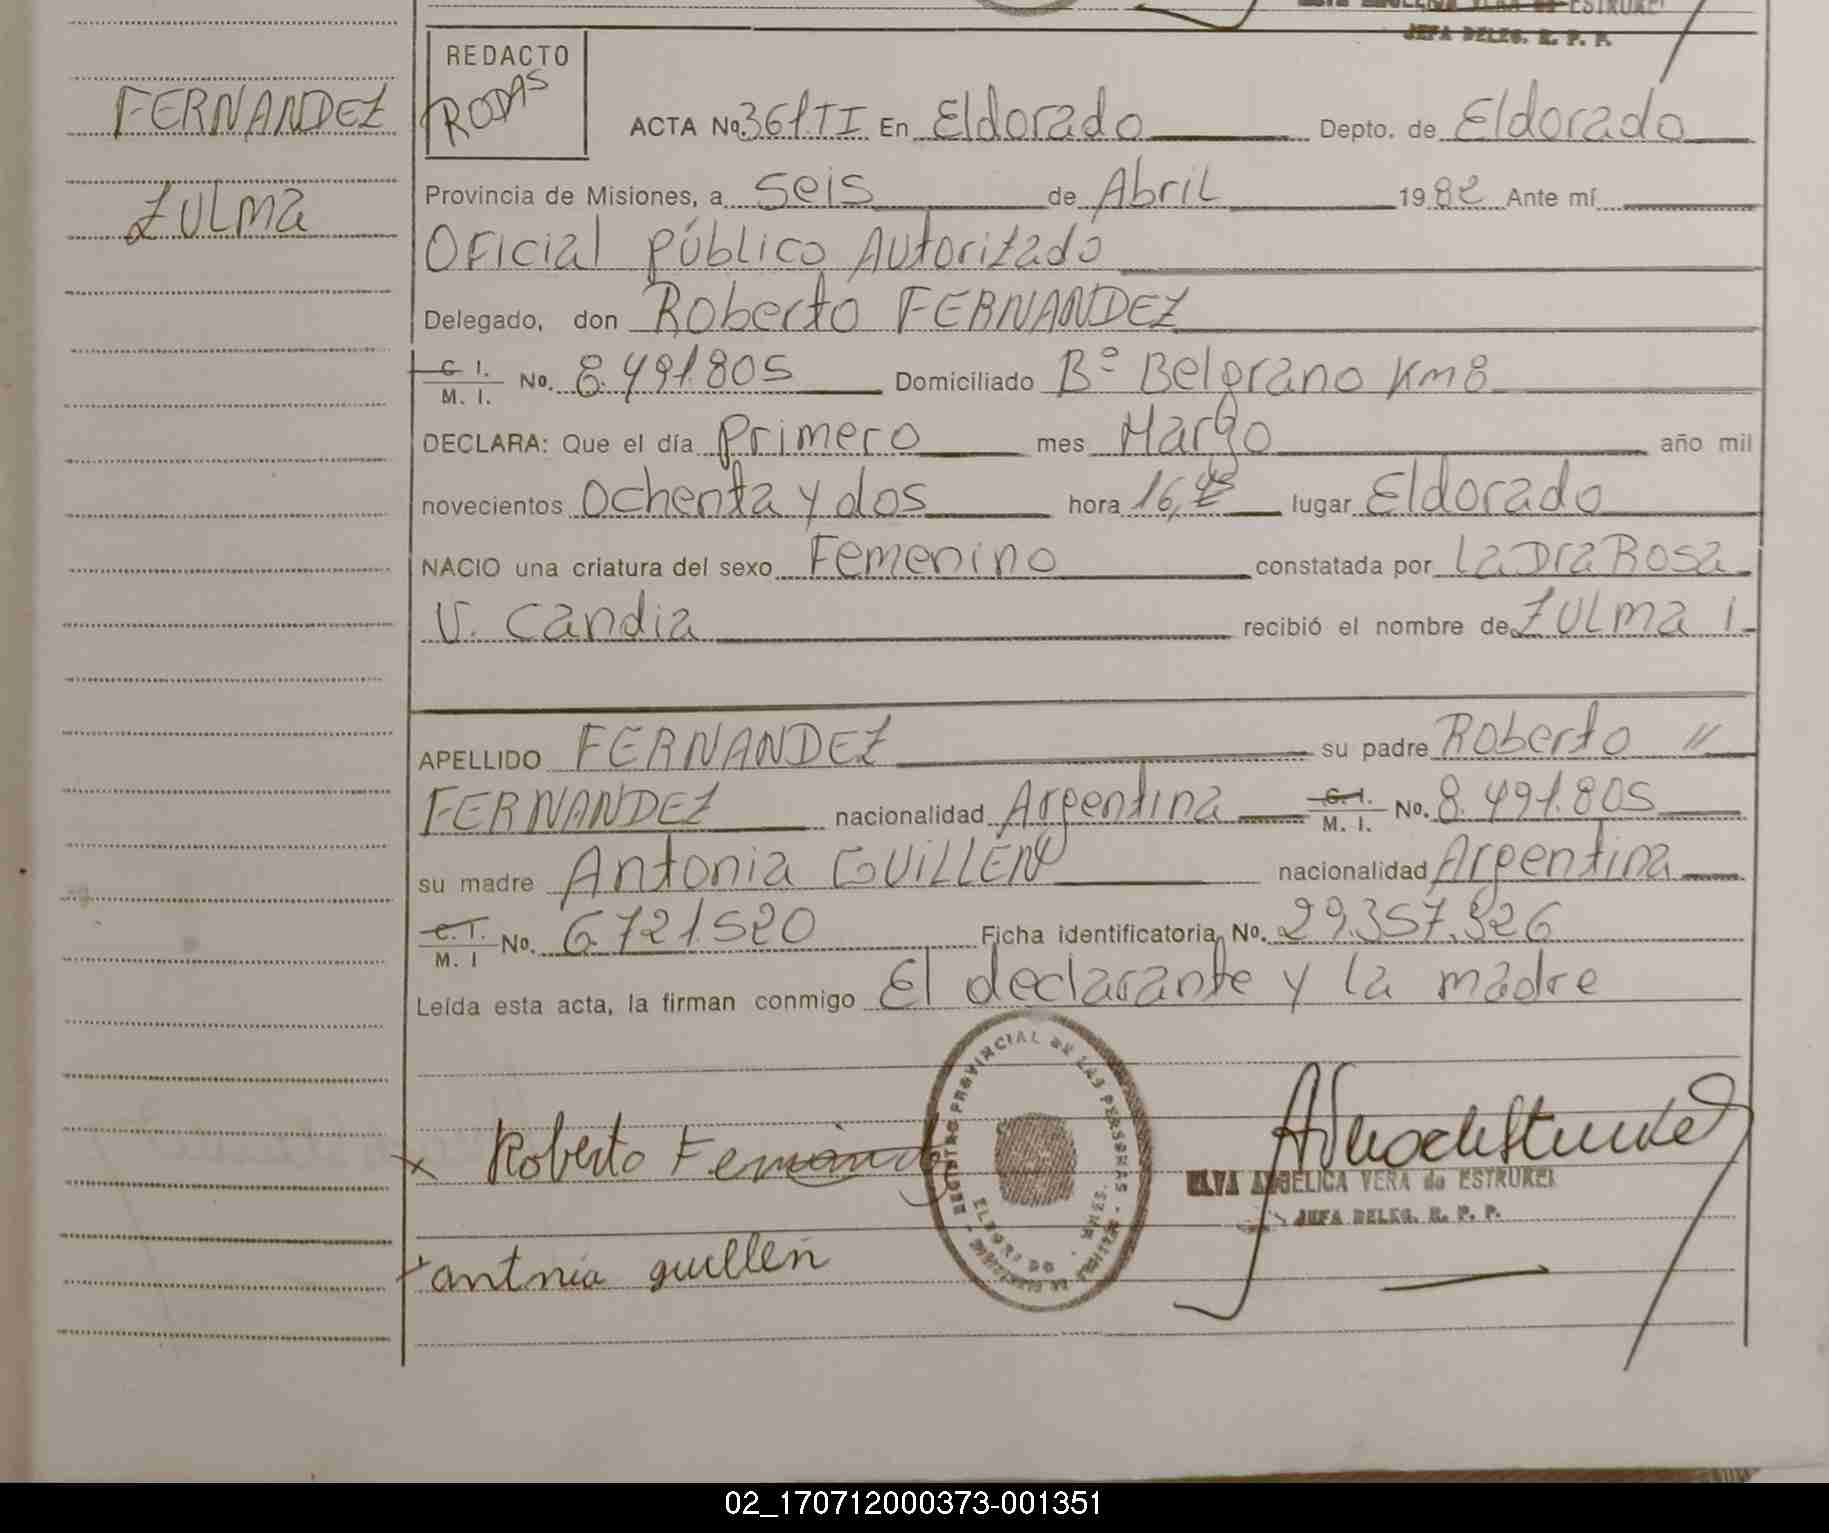 JEFA DELEG. R. P. P.
REDACTO
RODAS
FERNANDEZ
ZULMA
ACTA No. 361.TI En Eldorado Depto. de Eldorado
Provincia de Misiones, a Seis de Abril 1982 Ante mí
Oficial Público Autorizado
Delegado, don Roberto FERNANDEZ
C. I. M. I. No. 8.491.805 Domiciliado Bº Belgrano Km 8
DECLARA: Que el día Primero mes Marzo año mil
novecientos Ochenta y dos hora 16, lugar Eldorado
NACIO una criatura del sexo Femenino constatada por La Dra Rosa
V. Candia recibió el nombre de ZULMA
APELLIDO FERNANDEZ su padre Roberto //
FERNANDEZ nacionalidad Argentina C. I. M. I. No. 8.491.805
su madre Antonia GUILLEN nacionalidad Argentina
C. I. M. I No. 6.721.520 Ficha identificatoria No. 29.357.926
Leída esta acta, la firman conmigo El declarante y la madre
REGISTRO PROVINCIAL DE LAS PERSONAS
ELDORADO
x Roberto Fernandez
ELVA ANGELICA VERA de ESTRUKEL
JEFA DELEG. R. P. P.
x antnia guillen
02_170712000373-001351